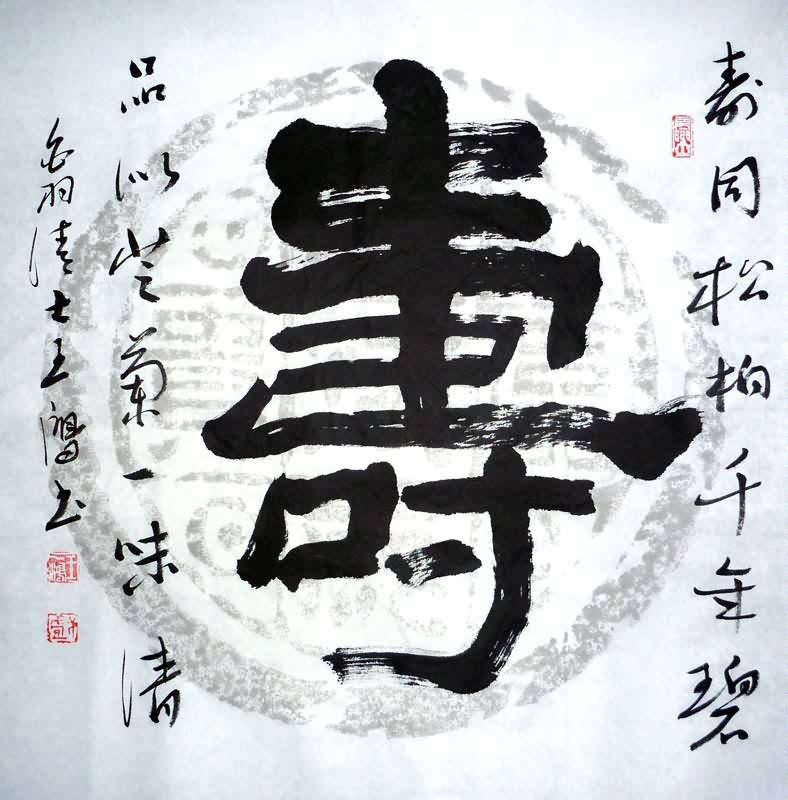 寿同松柏千年碧
壽
品似芝蘭一味清
清士王鸿书